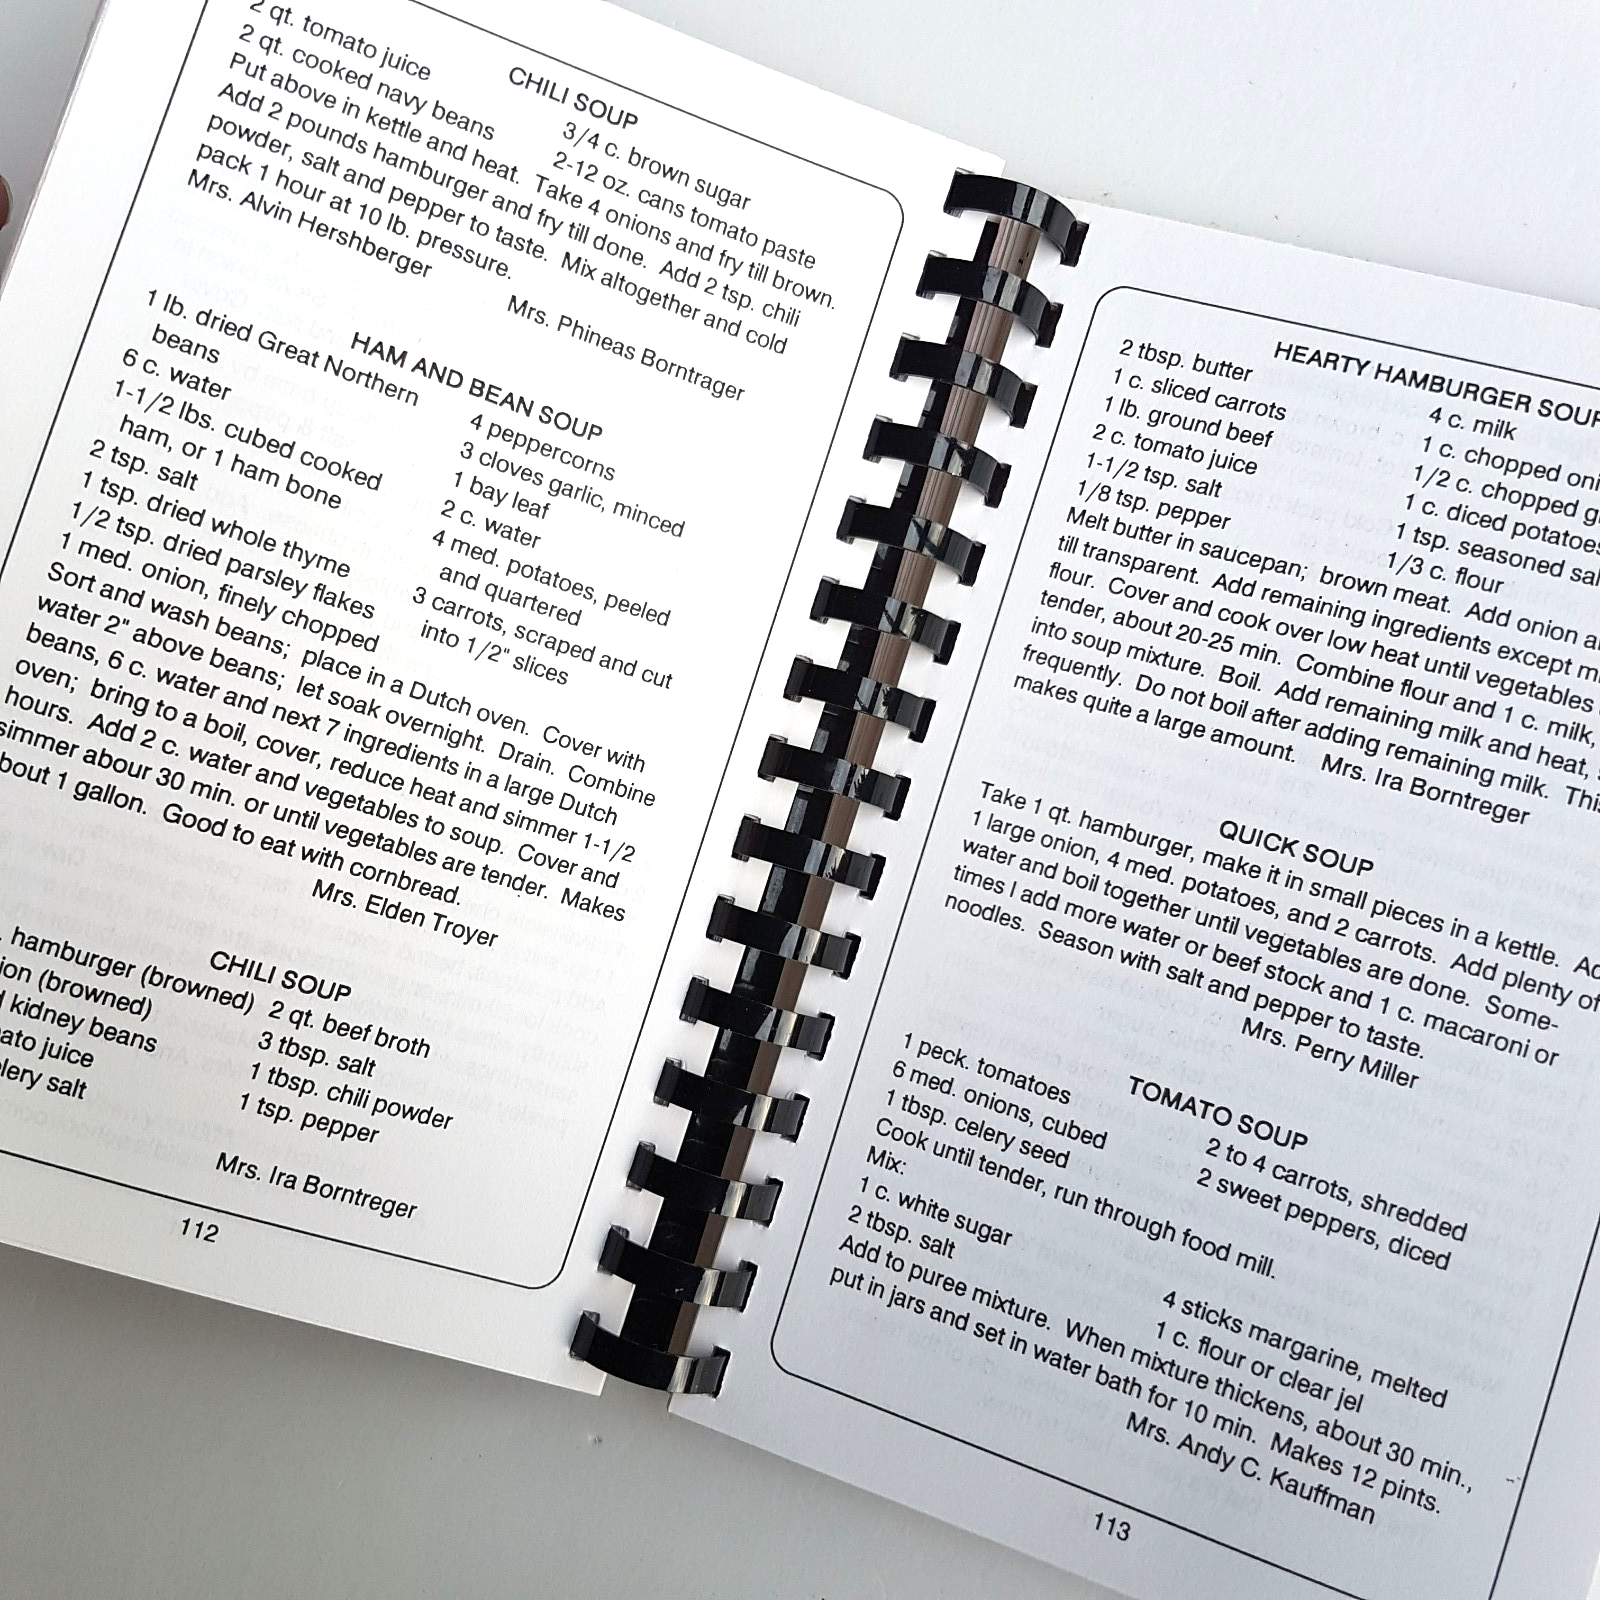 CHILI SOUP
2 qt. tomato juice
2 qt. cooked navy beans
3/4 c. brown sugar
2-12 oz. cans tomato paste
Put above in kettle and heat. Take 4 onions and fry till brown.
Add 2 pounds hamburger and fry till done. Add 2 tsp. chili
powder, salt and pepper to taste. Mix altogether and cold
pack 1 hour at 10 lb. pressure.
Mrs. Alvin Hershberger
Mrs. Phineas Borntrager
HAM AND BEAN SOUP
1 lb. dried Great Northern
beans
6 c. water
1-1/2 lbs. cubed cooked
ham, or 1 ham bone
2 tsp. salt
1 tsp. dried whole thyme
1/2 tsp. dried parsley flakes
1 med. onion, finely chopped
4 peppercorns
3 cloves garlic, minced
1 bay leaf
2 c. water
4 med. potatoes, peeled
and quartered
3 carrots, scraped and cut
into 1/2" slices
Sort and wash beans; place in a Dutch oven. Cover with
water 2" above beans; let soak overnight. Drain. Combine
beans, 6 c. water and next 7 ingredients in a large Dutch
oven; bring to a boil, cover, reduce heat and simmer 1-1/2
hours. Add 2 c. water and vegetables to soup. Cover and
simmer about 30 min. or until vegetables are tender. Makes
bout 1 gallon. Good to eat with cornbread.
Mrs. Elden Troyer
CHILI SOUP
. hamburger (browned)
ion (browned)
kidney beans
ato juice
lery salt
2 qt. beef broth
3 tbsp. salt
1 tbsp. chili powder
1 tsp. pepper
Mrs. Ira Borntreger
112
HEARTY HAMBURGER SOUP
2 tbsp. butter
1 c. sliced carrots
1 lb. ground beef
2 c. tomato juice
1-1/2 tsp. salt
1/8 tsp. pepper
4 c. milk
1 c. chopped oni
1/2 c. chopped g
1 c. diced potatoes
1 tsp. seasoned sal
1/3 c. flour
Melt butter in saucepan; brown meat. Add onion a
till transparent. Add remaining ingredients except mi
flour. Cover and cook over low heat until vegetables
tender, about 20-25 min. Combine flour and 1 c. milk,
into soup mixture. Boil. Add remaining milk and heat, s
frequently. Do not boil after adding remaining milk. This
makes quite a large amount. Mrs. Ira Borntreger
QUICK SOUP
Take 1 qt. hamburger, make it in small pieces in a kettle. Ad
1 large onion, 4 med. potatoes, and 2 carrots. Add plenty of
water and boil together until vegetables are done. Some-
times I add more water or beef stock and 1 c. macaroni or
noodles. Season with salt and pepper to taste.
Mrs. Perry Miller
TOMATO SOUP
1 peck. tomatoes
6 med. onions, cubed
1 tbsp. celery seed
2 to 4 carrots, shredded
2 sweet peppers, diced
Cook until tender, run through food mill.
Mix:
1 c. white sugar
2 tbsp. salt
4 sticks margarine, melted
1 c. flour or clear jel
Add to puree mixture. When mixture thickens, about 30 min.,
put in jars and set in water bath for 10 min. Makes 12 pints.
Mrs. Andy C. Kauffman
113